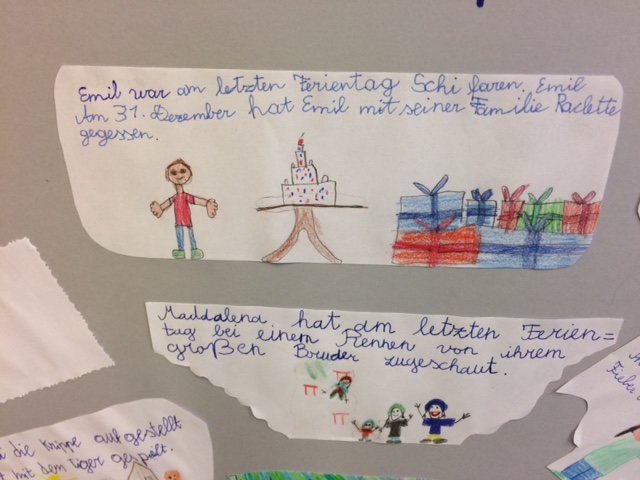 Emil war am letzten Ferientag Schi faren. Emil
Am 31. Dezember hat Emil mit seiner Familie Raclette
gegessen.
Maddalena hat am letzten Ferien=
tag bei einem Rennen von ihrem
großen Bruder zugeschaut.
die Krippe aufgestellt
mit dem Tiger gespielt.